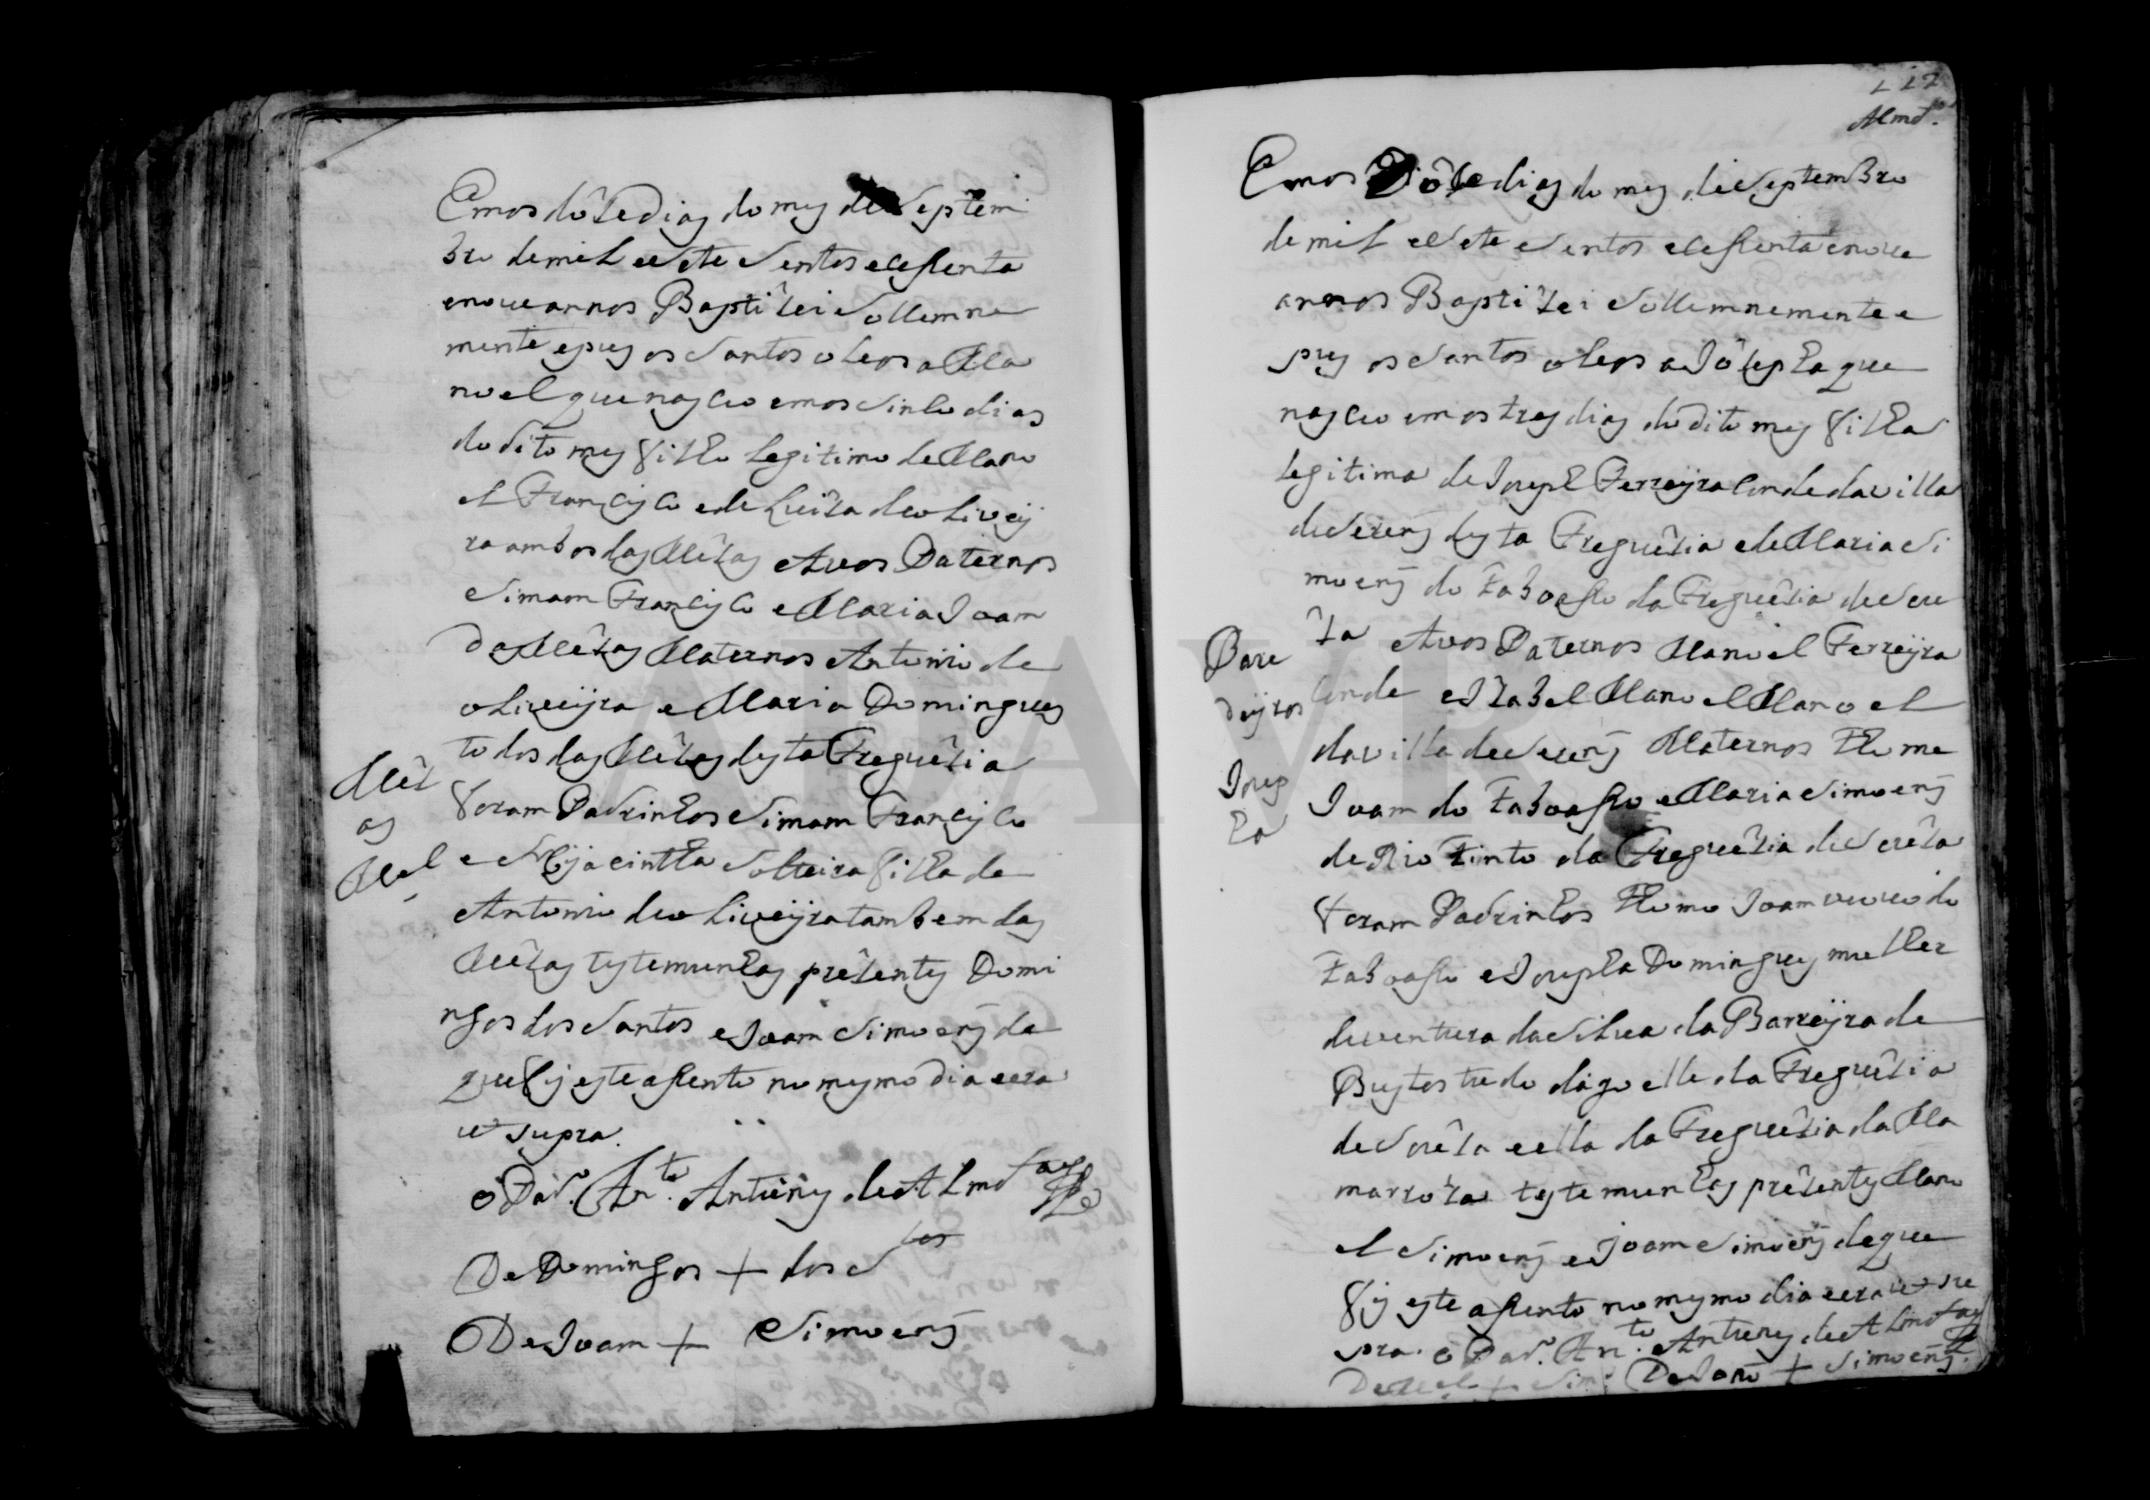 Emos dôze dias do mes de Septem
bro de mil e sete sentos e cessenta
e nove annos Baptizei sollemne
mente e pus os santos oleos a Ma
noel que nasceo em os sinco dias
do dito mes filho legitimo de Mano
el Francisco e de Luiza de oliveij
ra ambos das Mêzas e Avos Paternos
Simam Francisco e Maria Joam
Das Mêzas Maternos Antonio de
oliveijra e Maria Domingues
todos das Mêzas desta Freguêzia
Mêz
foram Padrinhos Simam Francisco
as
e Hijacintha solteira filha de
Mel
Antonio de oliveijra tambem das
Mêzas testemunhas prêzentes Domi
ngos dos Santos e Joam Simoens de
que fis este assento no mesmo dia e era
ut supra.
o Par. An.to Antunes de Almd.a
De Domingos + dos S.tos
De Joam + Simoens
112
Almd.a
Emos Dôze dias do mes de Septembro
de mil e sete sentos e cessenta e nove
annos Baptizei sollemnemente e
pus os santos oleos a Jozepha que
nasceo em os tres dias do dito mes filha
legitima de Joseph Ferreijra Conde da villa
de Serens desta Freguêzia e de Maria Si
moens do Taboasso da Freguêzia de Sore
za e Avos Paternos Manoel Ferreijra
Pare
Conde e Izabel Manoel Manoel
deijros
da villa de Serens Maternos Thome
Josep
Joam do Taboasso e Maria Simoens
ha
de Rio tinto da Freguêzia de Sorêza
foram Padrinhos Thome Joam veuvo do
Taboasso e Josepha Domingues mulher
de ventura da Silva da Barreijra de
Bustos tudo digo elle da Freguêzia
de Sorêza e ella da Freguêzia da Ma
marroza testemunhas prêzentes Mano
el Simoens e Joam Simoens de que
fis este assento no mesmo dia e era ut su
pra. o Par. An.to Antunes de Almd.a
De Mel + Sim: De Joam + Simoens.
ADAVR